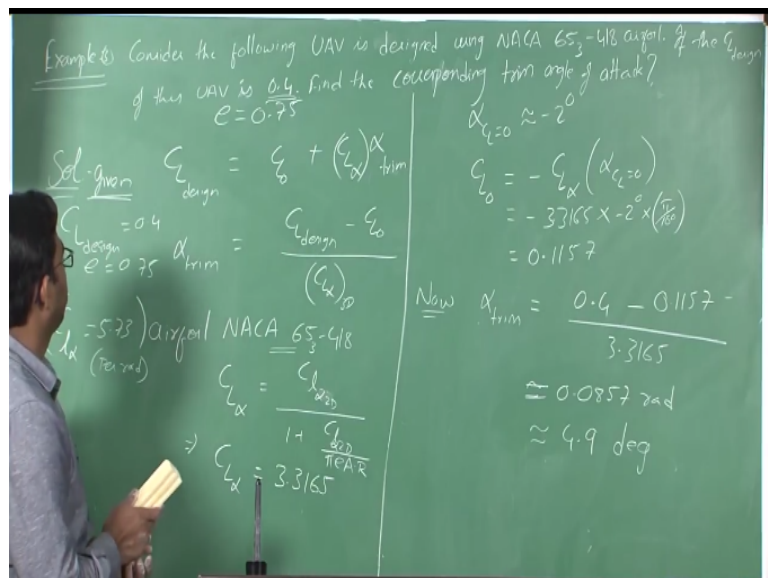 Example Consider the following UAV is designed using NACA 65₃-418 airfoil. If the C_L design
of this UAV is 0.4. Find the corresponding trim angle of attack?
e = 0.75
Sol. given C_L design = C_L0 + (C_Lα) α trim
C_L design = 0.4
e = 0.75
α trim = (C_L design - C_L0) / (C_Lα)3D
lα = 5.73) airfoil NACA 65₃-418
(Per rad)
C_Lα = C_lα2D / (1 + C_lα2D / πeAR)
⇒ C_Lα = 3.3165
α C_L=0 ≈ -2°
C_L0 = - C_Lα (α C_L=0)
= - 33165 × -2° × (π/180)
= 0.1157
Now α trim = (0.4 - 0.1157) / 3.3165
≅ 0.0857 rad
≈ 4.9 deg